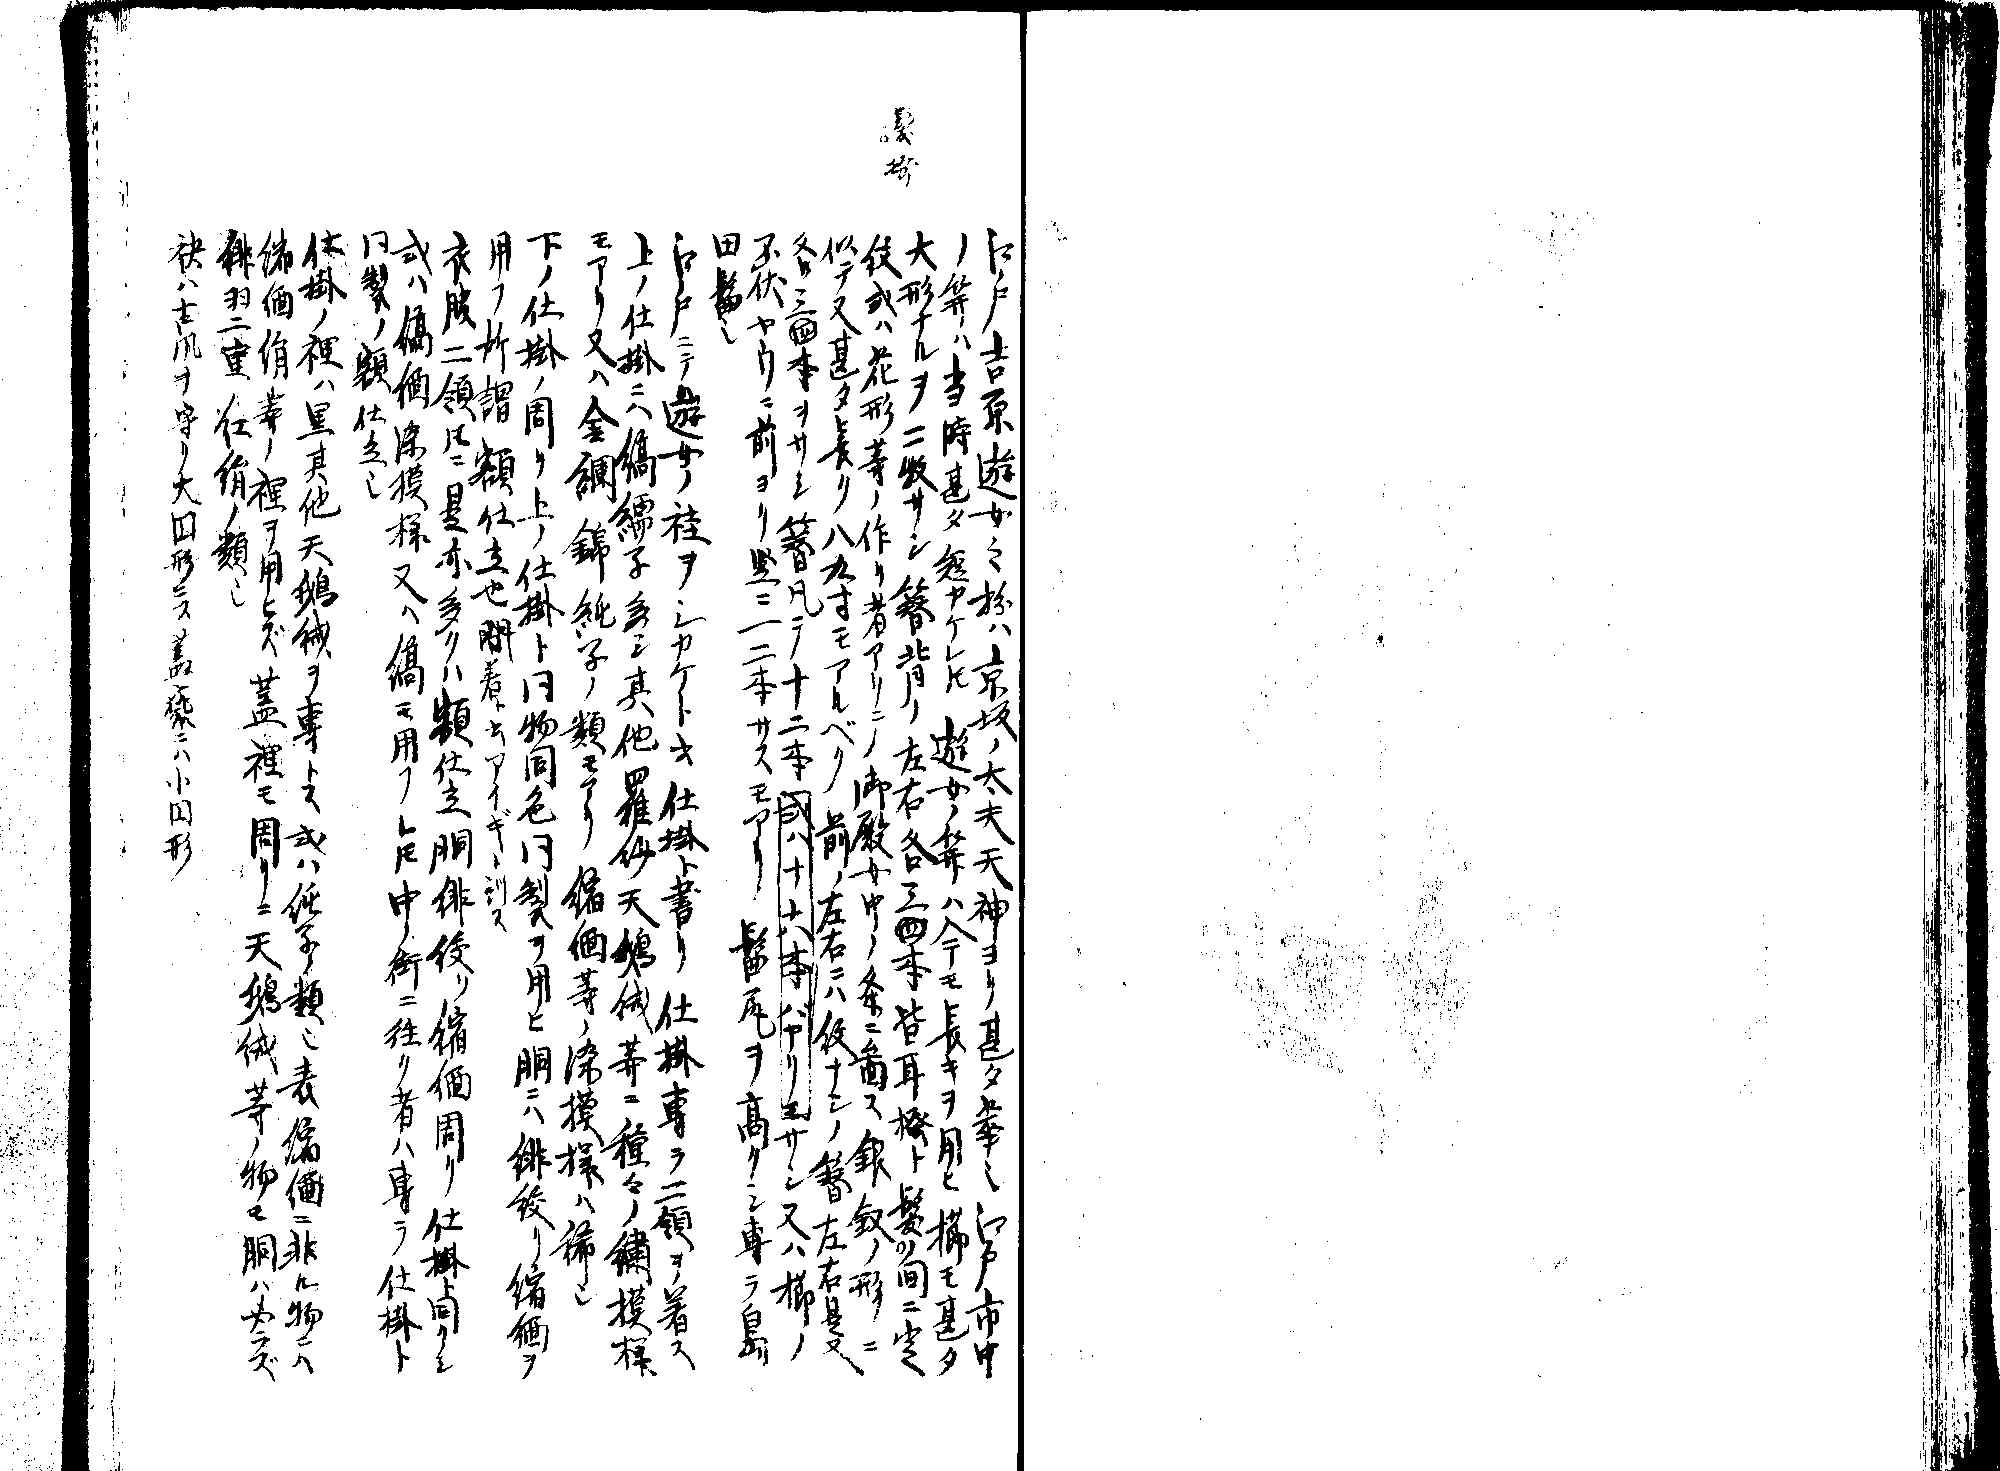 江戸吉原遊女之扮ハ京坂ノ太夫天神ヨリ甚タ華也江戸市中
ノ笄ハ当時甚タ短カケレ𪜈遊女ノ笄ハ今テモ長キヲ用ヒ櫛モ甚タ
大形ナルヲ二枚サシ簪背ノ左右各三四本皆耳掻ト髪ノ間ニ定
紋或ハ花形等ノ作リ者アリ御殿女中ノ条ニ図ス銀釵ノ形ニ
似テ又甚タ長ク八九寸モアルベク前ノ左右ニハ紋ナシノ簪左右是又
各三四本ヲサシ簪凡テ十二本或ハ十六本バカリモサシ又ハ櫛ノ
不伏ヤウニ前ヨリ竪ニ一二本サスモアリ髷尾ヲ高クシ専ラ島
田髷也
江戸ニテ遊女ノ袿ヲシカケト云仕掛ト書リ仕掛専ラ二領ヲ着ス
上ノ仕掛ニハ縞繻子多シ其他羅紗天鵝絨等ニ種々ノ繍模様
モアリ又ハ金襴錦純子ノ類モアリ縮緬等ノ染模様ハ稀也
下ノ仕掛ノ周リ上ノ仕掛ト同物同色同製ヲ用ヒ胴ニハ緋絞リ縮緬ヲ
用フ所謂額仕立也間着ト云アイギト訓ス
衣服二領𪜈ニ是亦多クハ額仕立胴緋絞リ縮緬周リ仕掛ト同クシ
或ハ縞縮緬染模様又ハ縞モ用フレ𪜈中ノ街ニ往ク者ハ専ラ仕掛ト
同製ノ額仕立也
仕掛ノ裡ハ黒其他天鵝絨ヲ専トス或ハ純子ノ類也表縮緬ニ非ル物ニハ
縮緬絹等ノ裡ヲ用ヒズ蓋裡モ周リニ天鵝絨等ノ物モ胴ハ必ラズ
緋羽二重紅絹ノ類也
袂ハ古風ヲ守リ大図形ニス蓋襲ニハ小図形